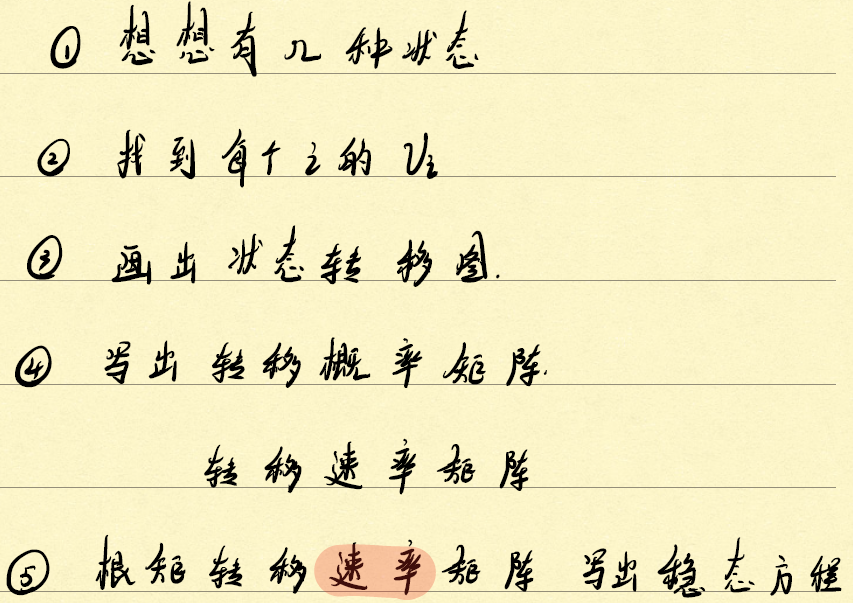 ① 想想有几种状态
② 找到每个i的Vi
③ 画出状态转移图.
④ 写出转移概率矩阵.
转移速率矩阵
⑤ 根矩转移速率矩阵 写出稳态方程